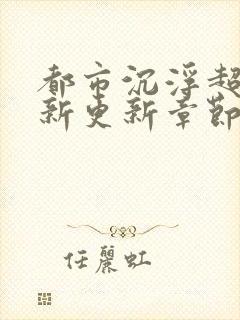 都市沉浮超
新更新章節
任麗虹